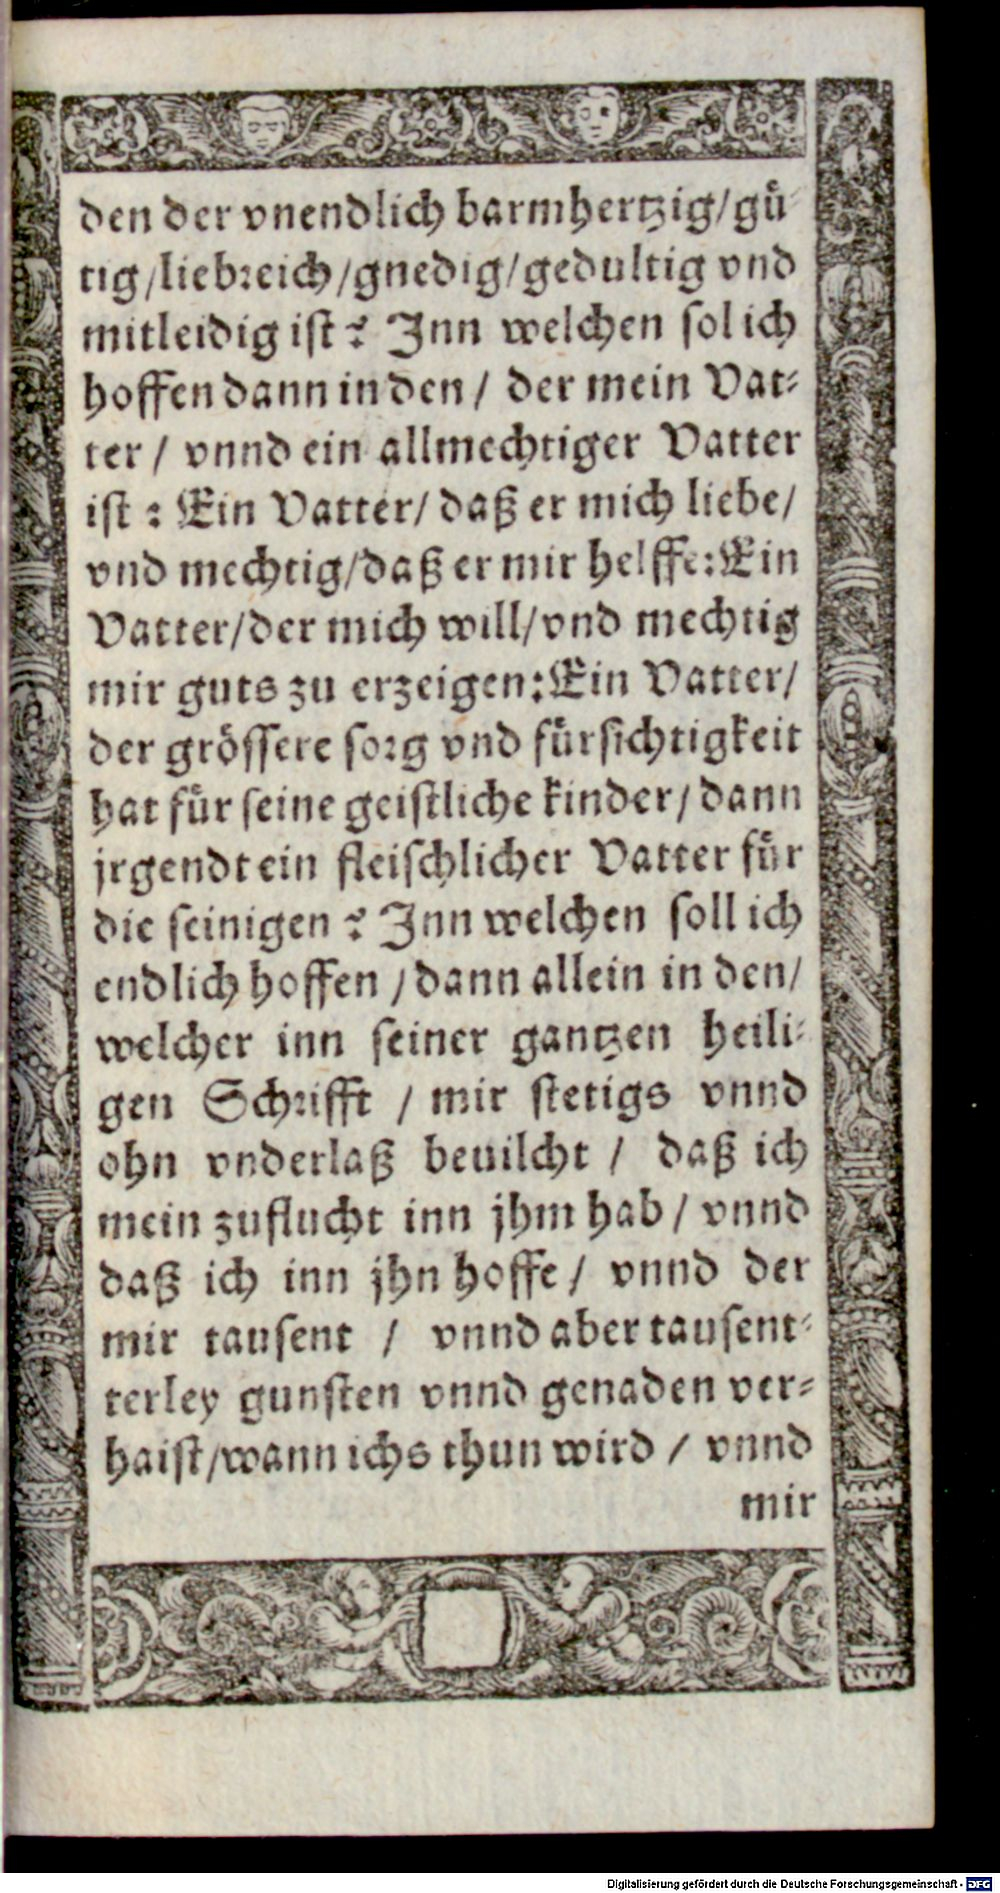 den der vnendlich barmhertzig/gü-
tig/liebreich/gnedig/gedultig vnd
mitleidig ist? Jnn welchen sol ich
hoffen dann in den/ der mein Vat-
ter/ vnnd ein allmechtiger Vatter
ist: Ein Vatter/ daß er mich liebe/
vnd mechtig/daß er mir helffe:Ein
Vatter/der mich will/vnd mechtig
mir guts zu erzeigen:Ein Vatter/
der grössere sorg vnd fürsichtigkeit
hat für seine geistliche kinder/dann
jrgendt ein fleischlicher Vatter für
die seinigen? Jnn welchen soll ich
endlich hoffen/dann allein in den/
welcher inn seiner gantzen heili-
gen Schrifft / mir stetigs vnnd
ohn vnderlaß beuilcht / daß ich
mein zuflucht inn jhm hab/ vnnd
daß ich inn jhn hoffe/ vnnd der
mir tausent / vnnd aber tausent-
terley gunsten vnnd genaden ver-
haist/wann ichs thun wird/ vnnd
mir
Digitalisierung gefördert durch die Deutsche Forschungsgemeinschaft - DFG